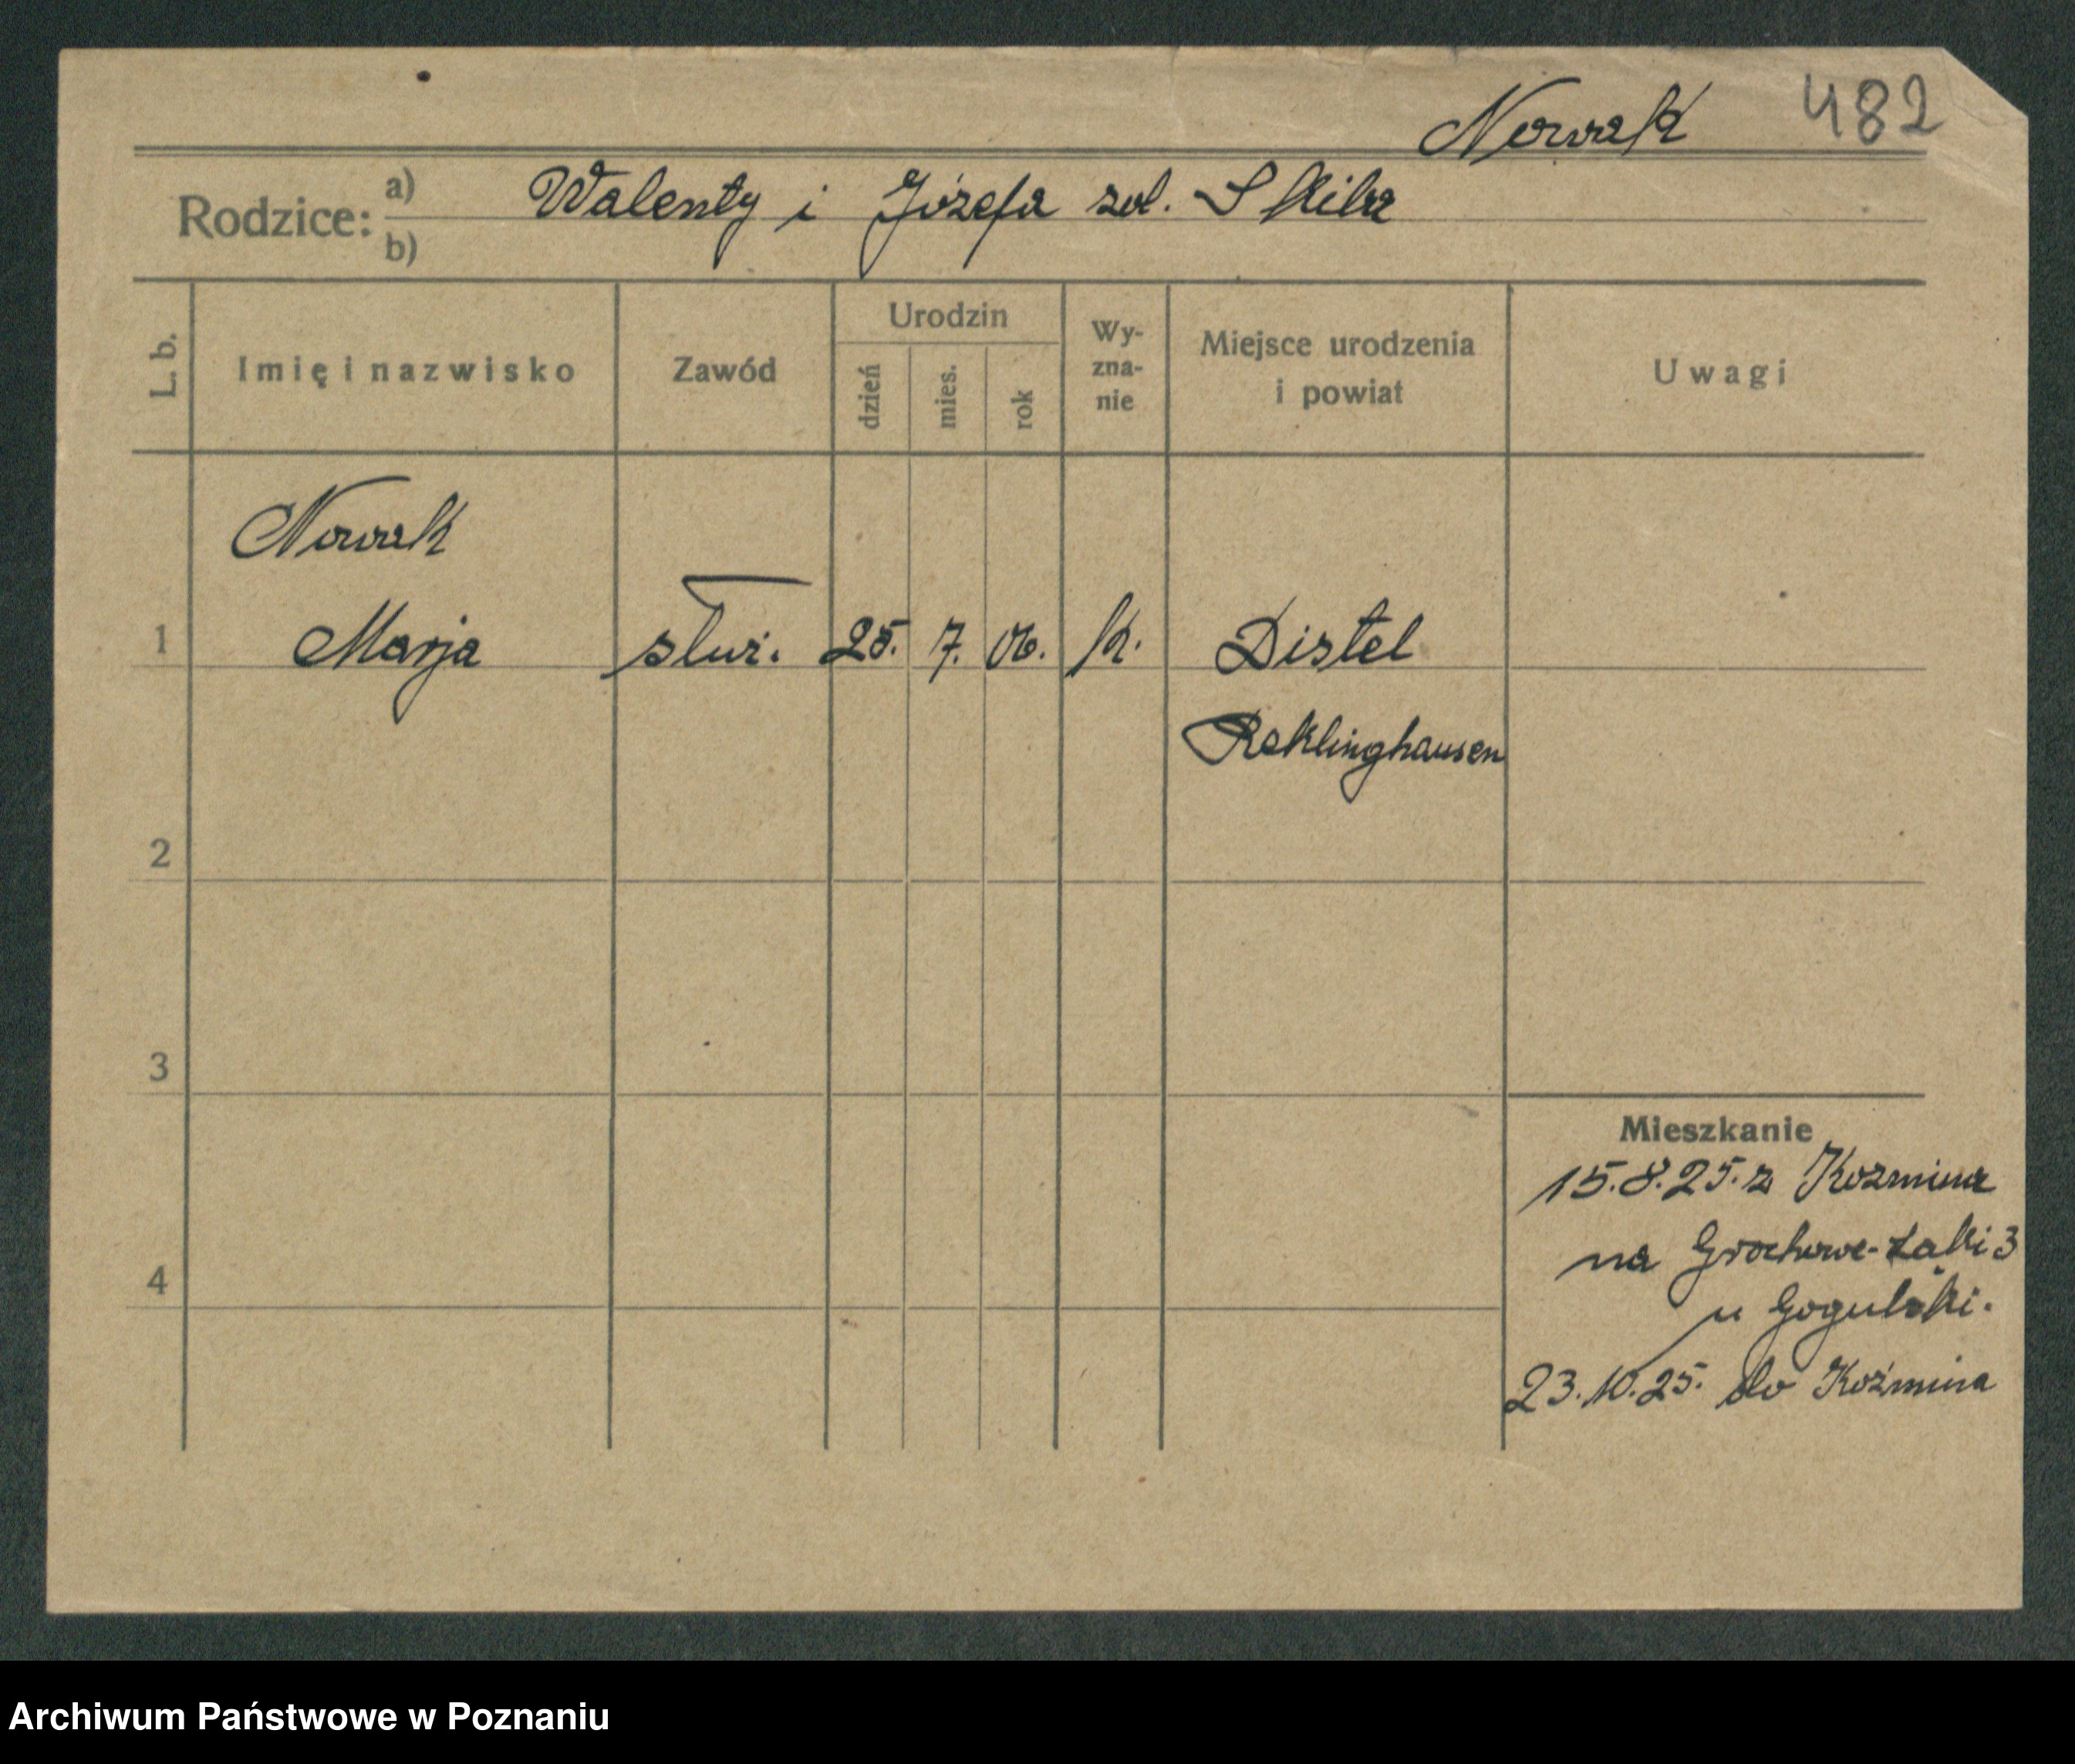 Nowak 482
Rodzice: a) Walenty i Józefa zd. Skiba
b)
L. b. Imię i nazwisko Zawód Urodzin dzień mies. rok Wy-zna-nie Miejsce urodzenia i powiat Uwagi
Nowak
1 Marja służ. 25. 7. 06. k. Distel
Reklinghausen
2
3
Mieszkanie
15.8.25. z Kozmina
na Grochowe-Łąki 3
4
u Gogulski.
23.10.25. do Koźmina
Archiwum Państwowe w Poznaniu